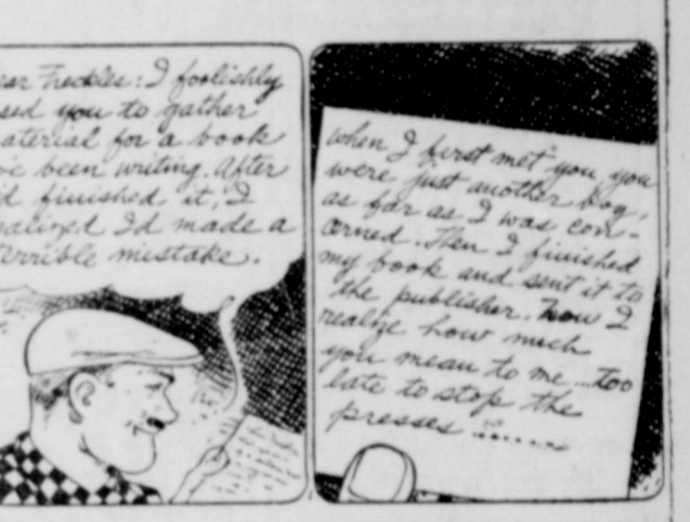 ear Freckles: I foolishly
sed you to gather
aterial for a book
ve been writing. After
d finished it, I
ealized I'd made a
terrible mistake.
when I first met you, you
were just another boy,
as far as I was con-
cerned. Then I finished
my book and sent it to
the publisher. Now I
realize how much
you mean to me ... too
late to stop the
presses .......